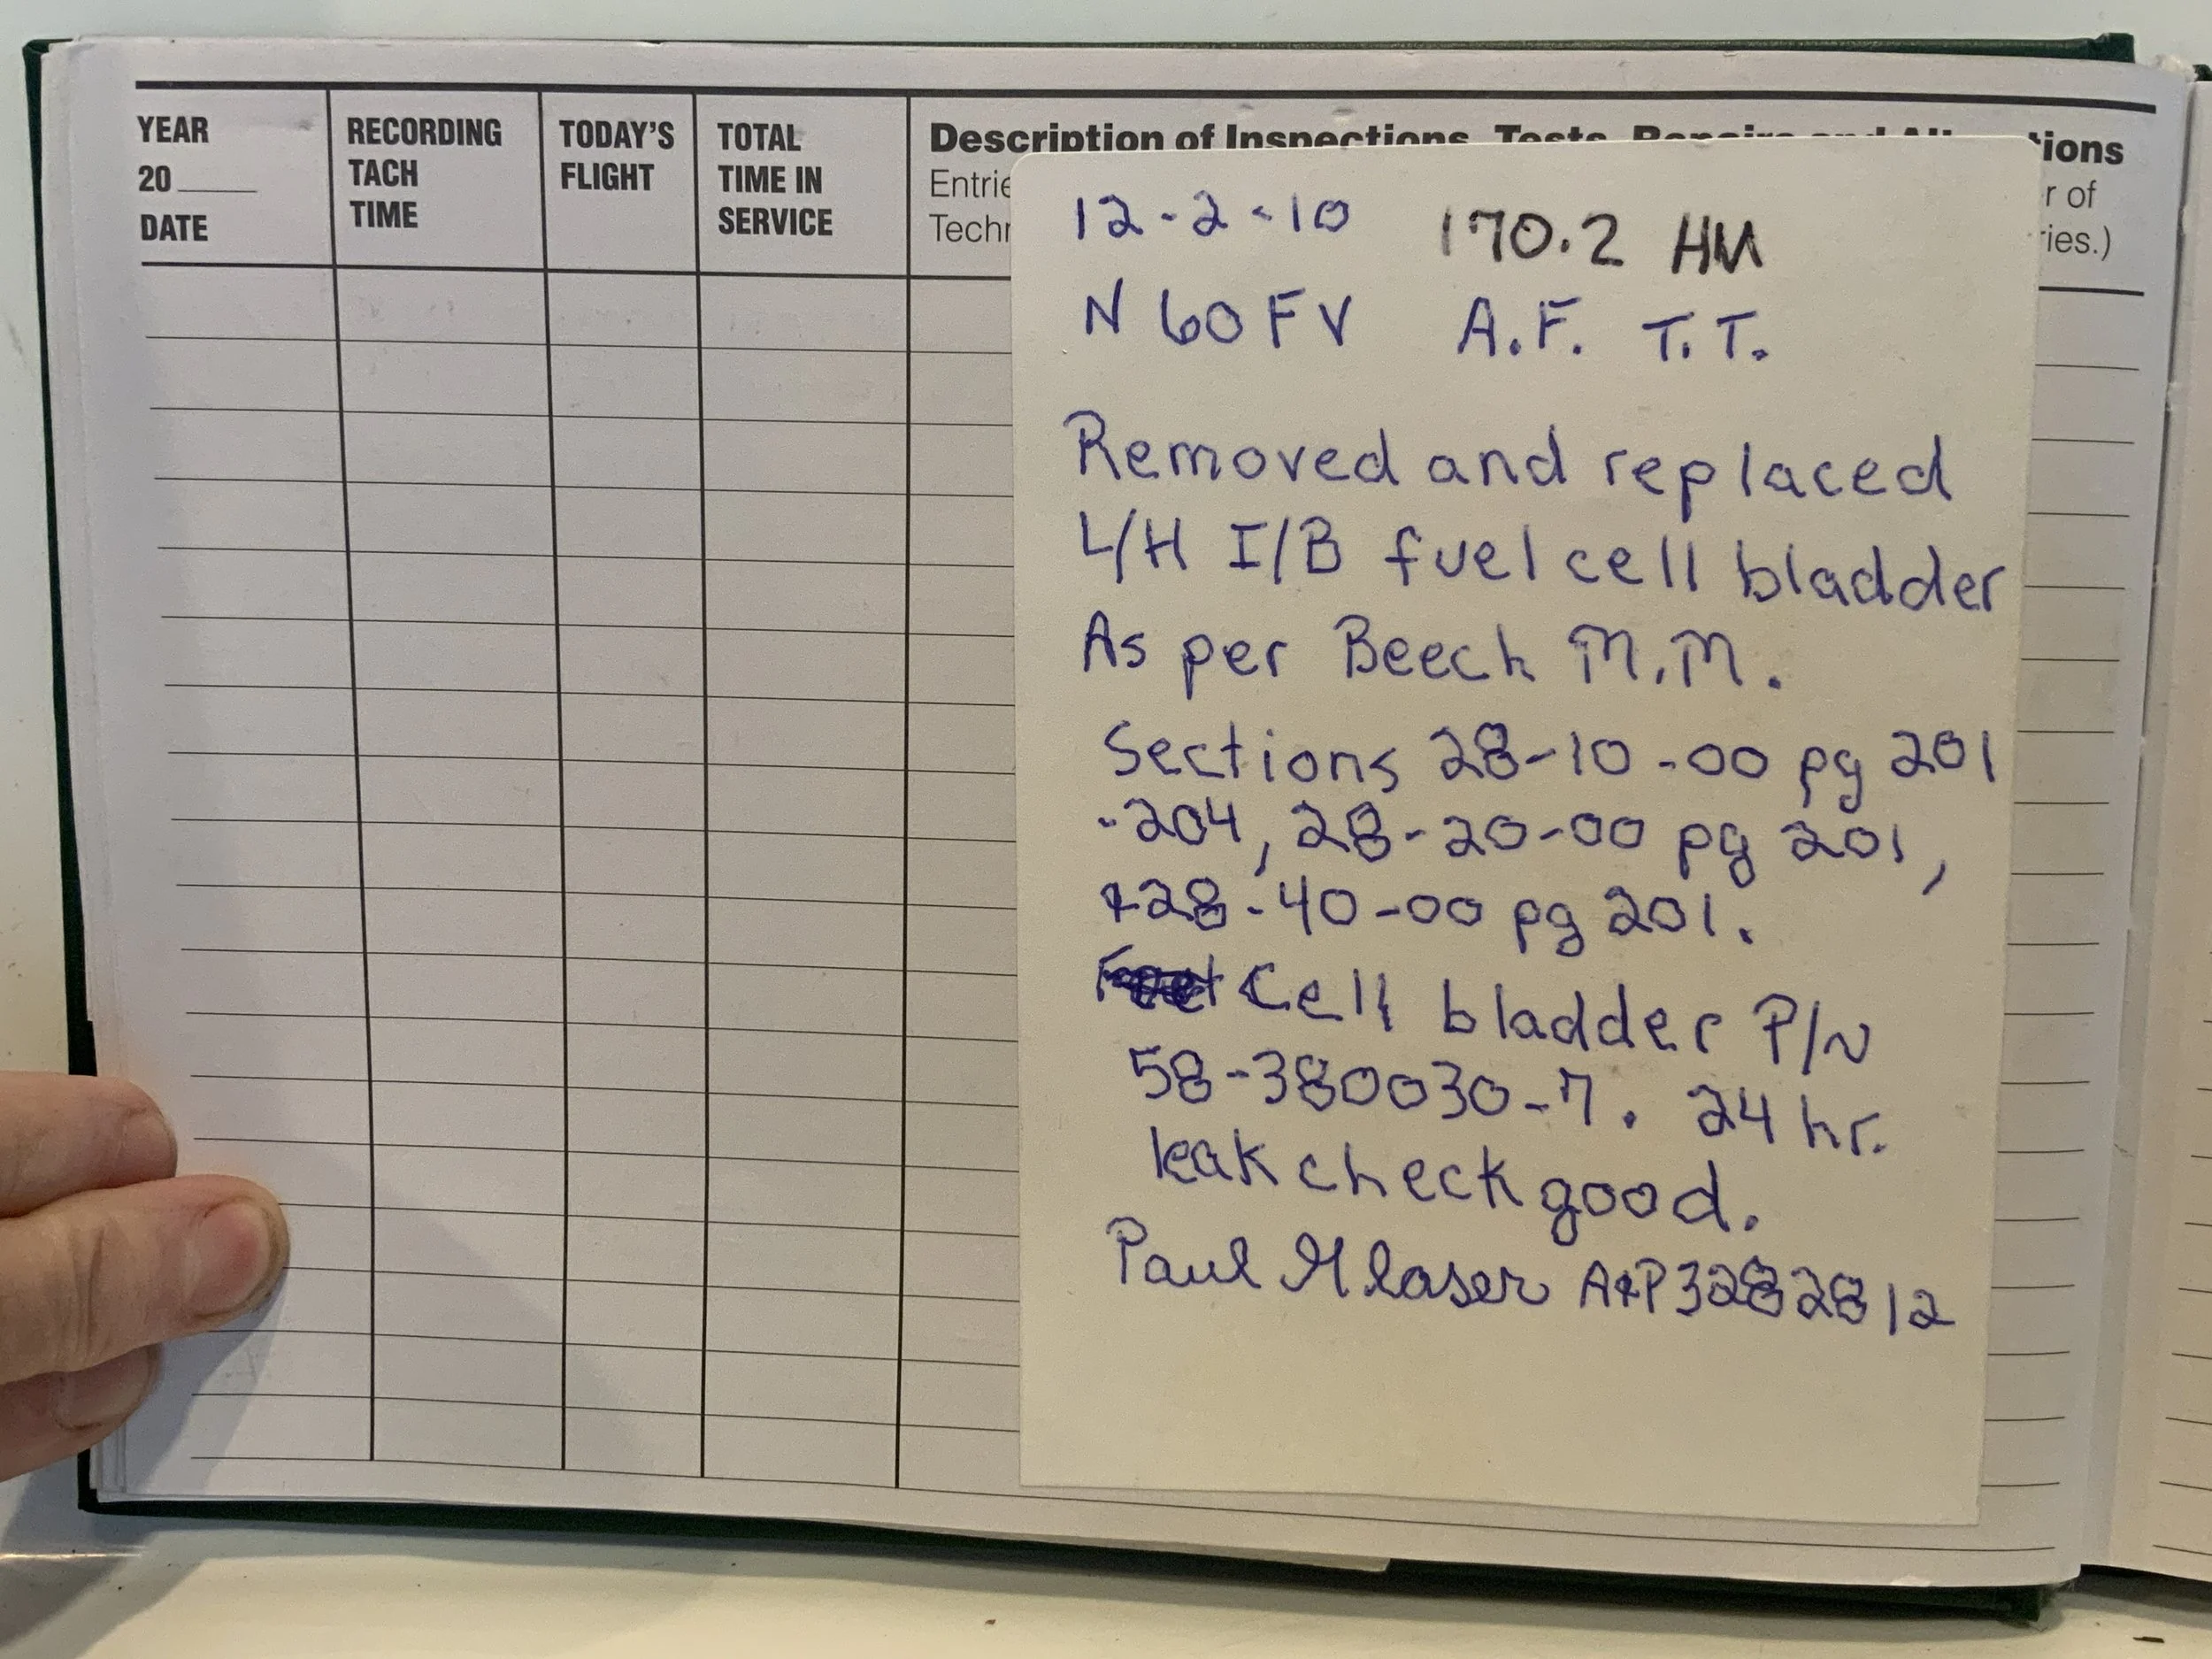 YEAR
20
DATE
RECORDING
TACH
TIME
TODAY'S
FLIGHT
TOTAL
TIME IN
SERVICE
Description of Inspections, Tests, Repairs and Alterations
Entrie
Techn
r of
ries.)
12-2-10 170.2 HM
N60FV A.F. T.T.
Removed and replaced
L/H I/B fuel cell bladder
As per Beech M.M.
Sections 28-10-00 pg 201
-204, 28-20-00 pg 201,
+28-40-00 pg 201.
Cell bladder P/N
58-380030-7. 24 hr.
leak check good.
Paul Glaser A&P 3282812